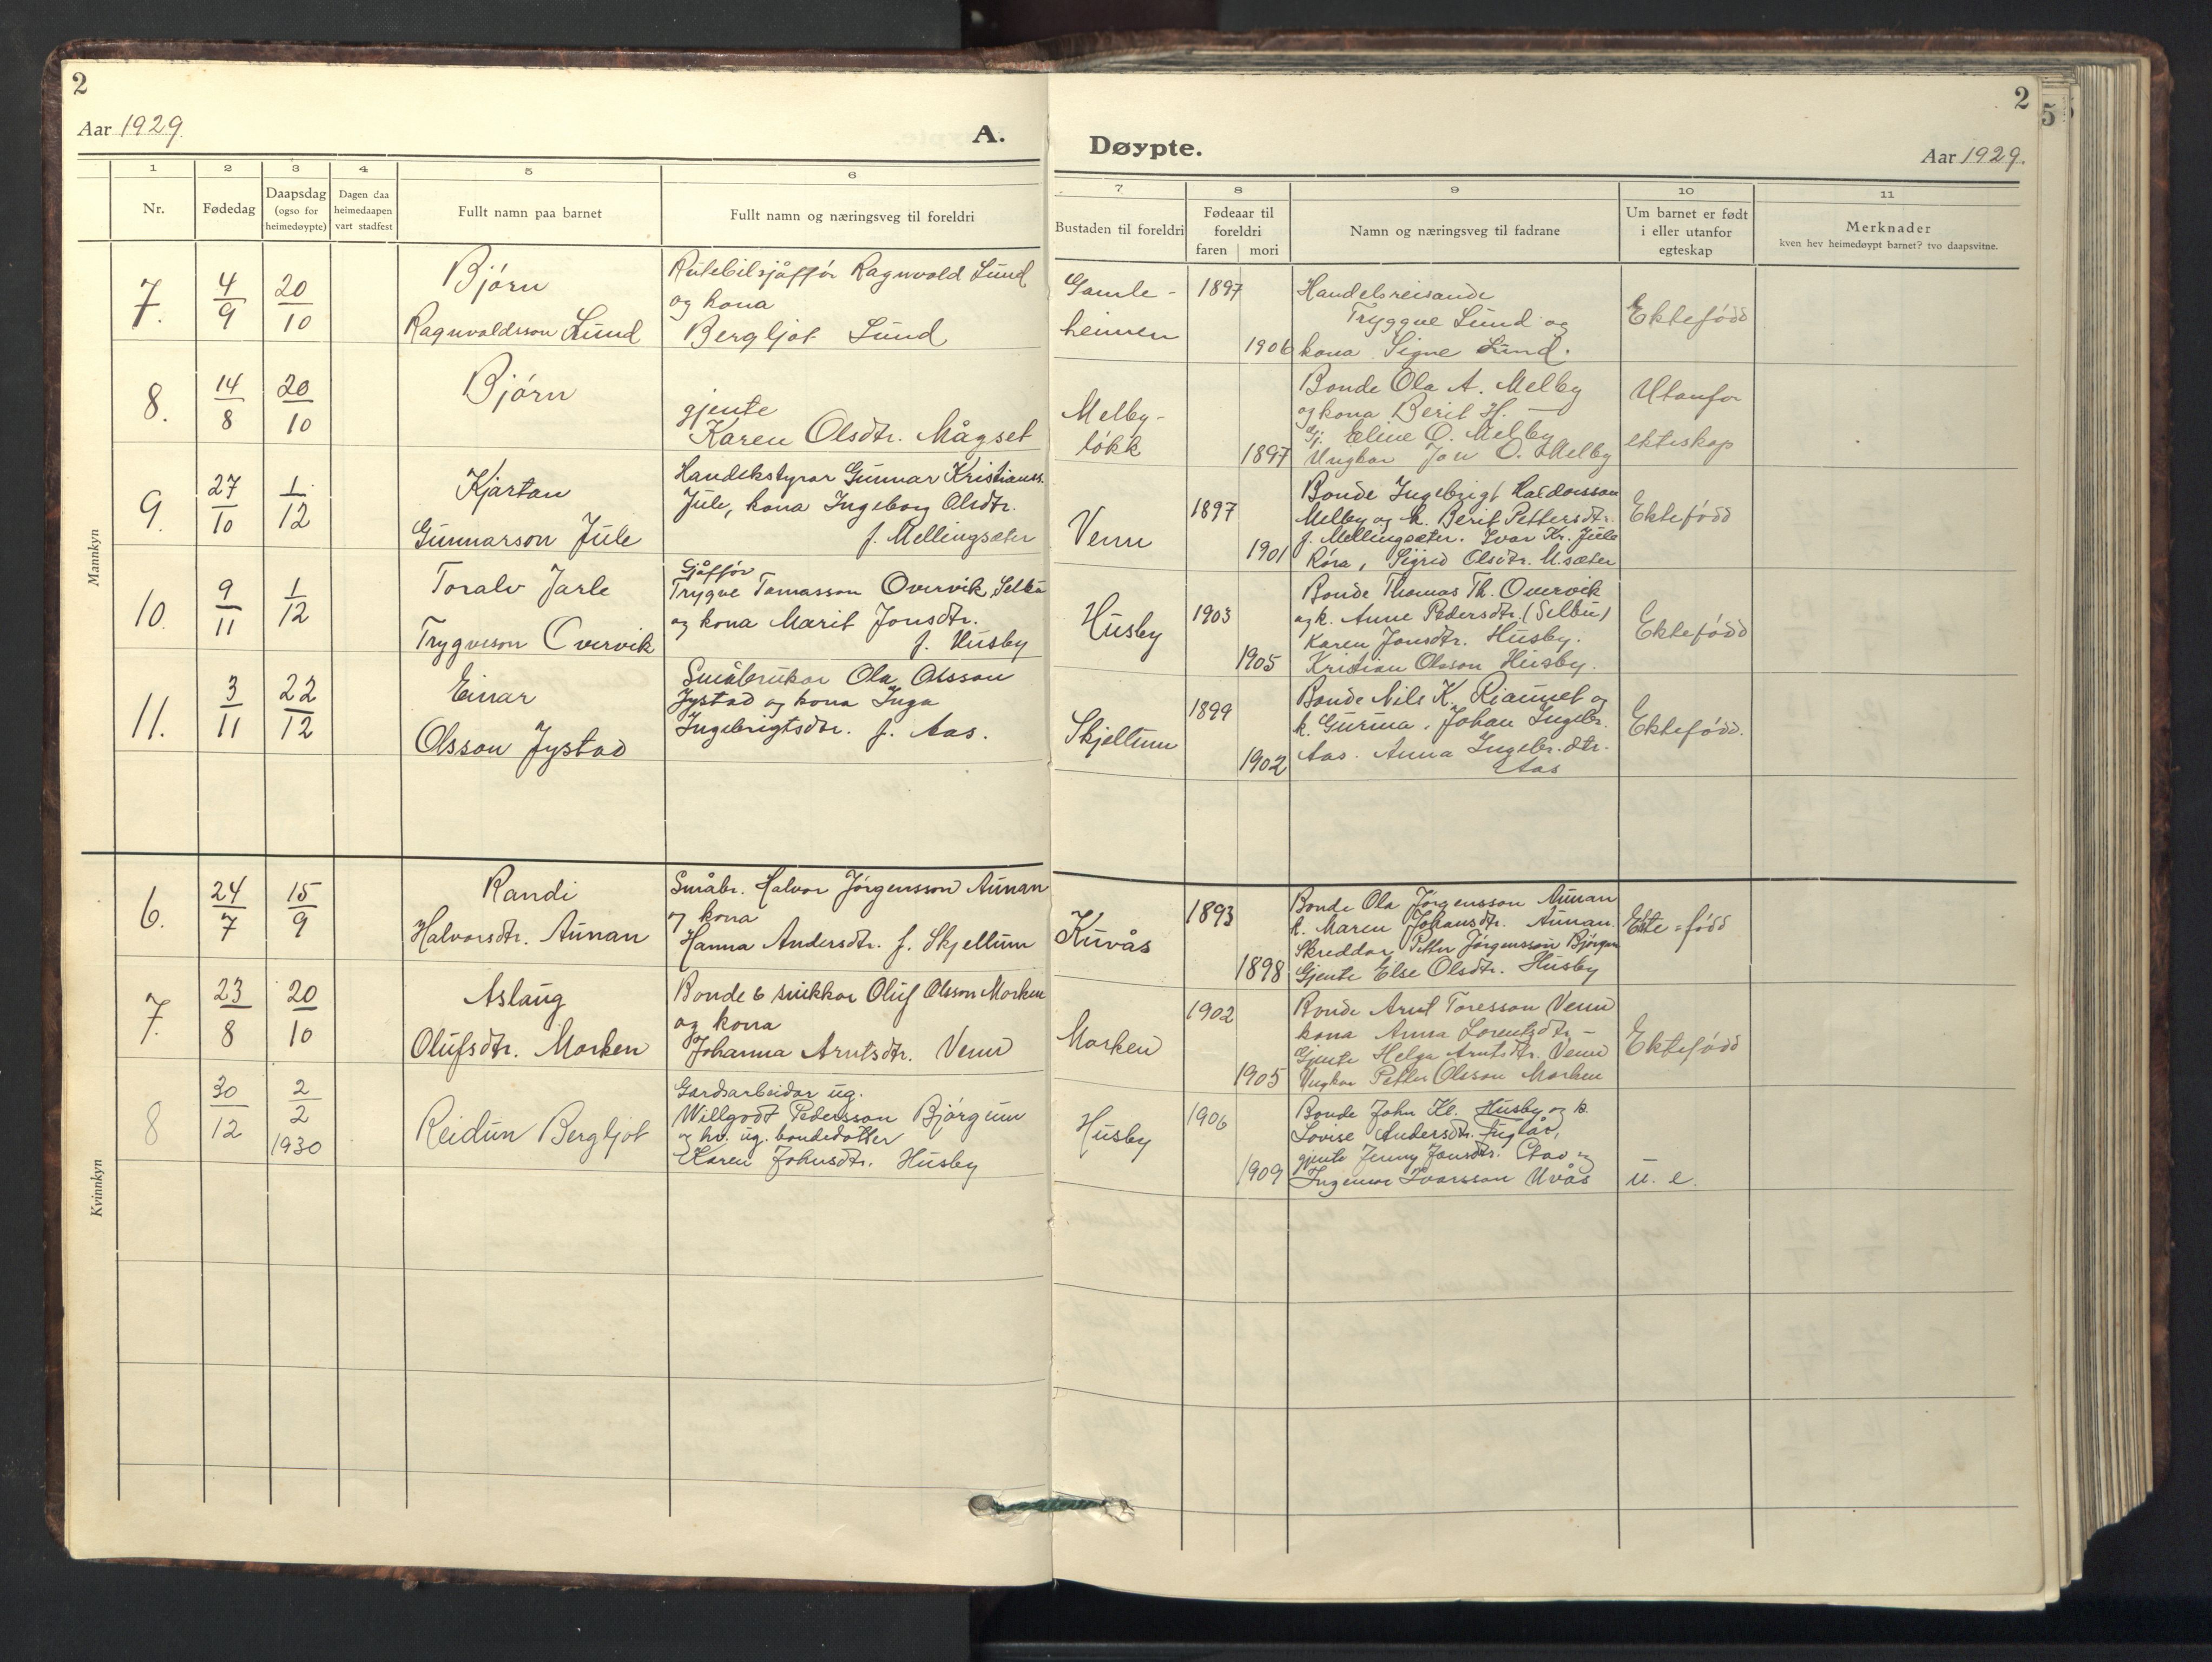 2
Aar 1929.
A.
Døypte.
2
Aar 1929.
5
1 2 3 4 5 6 7 8 9 10 11
Nr.
Fødedag
Daapsdag
(ogso for
heimedøypte)
Dagen daa
heimedaapen
vart stadfest
Fullt namn paa barnet
Fullt namn og næringsveg til foreldri
Bustaden til foreldri
Fødeaar til
foreldri
faren mori
Namn og næringsveg til fadrane
Um barnet er født
i eller utanfor
egteskap
Merknader
kven hev heimedøypt barnet? tvo daapsvitne.
Mannkyn
7.
4/9
20/10
Bjørn
Ragnvaldsson Lund
Rutebilsjåffør Ragnvald Lund
og kona
Bergljot Lund
Gamle-
heimen
1897
1906
Handelsreisande
Tryggve Lund og
kona Signe Lund.
Ektefödd
8.
14/8
20/10
Bjørn
gjente
Karen Olsdtr. Mågset
Melby-
løkk
1897
Bonde Ola A. Melby
og kona Berit H. —
Gj. Eline O. Melby
Ungkar Jon O. Melby
Utanfor
ekteskap
9.
27/10
1/12
Kjartan
Gunnarson Jule
Handelstyrar Gunnar Kristianss.
Jule, kona Ingeborg Olsdtr.
f. Mellingsæter
Venn
1897
1901
Bonde Ingebrigt Haldorsson
Melby og k. Berit Pettersdtr.
f. Mellingsæter. Ivar Kr. Jule
Røra, Sigrid Olsdtr. M.sæter
Ektefödd
10.
9/11
1/12
Toralv Jarle
Trygveson Overvik
Sjåffør
Trygve Tomasson Overvik, Selbu
og kona Marit Jonsdtr.
f. Husby
Husby
1903
1905
Bonde Thomas Th. Overvik
og k. Anne Pedersdtr. (Selbu)
Karen Jonsdtr. Husby.
Kristian Olsson Husby.
Ektefödd
11.
3/11
22/12
Einar
Olsson Jystad
Småbrukar Ola Olsson
Jystad og kona Inga
Ingebrigtsdtr. f. Aas.
Skjellum
1899
1902
Bonde Nils K. Riaunet og
k. Gurina. Johan Ingebr.
Aas. Anna Ingebr.dtr.
Aas
Ektefödd.
Kvinnkyn
6.
24/7
15/9
Randi
Halvorsdtr. Aunan
Småbr. Halvor Jørgensson Aunan
og kona
Hanna Andersdtr. f. Skjellum
Kuvås
1893
1898
Bonde Ola Jørgensson Aunan
k. Maren Johansdtr. Aunan.
Skreddar Petter Jørgensson Bjørgum
Gjente Else Olsdtr. Husby
Ekte=född
7.
23/8
20/10
Aslaug
Olufsdtr. Morken
Bonde & snikkar Oluf Olsson Morken
og kona
Johanna Arntsdtr. Venn
Morken
1902
1905
Bonde Arnt Toresson Venn
kona Anna Lorentsdtr –
Gjente Helga Arntsdtr. Venn
Ungkar Petter Olsson Morken
Ektefödd
8
30/12
2/2
1930
Reidun Bergljot
Gardsarbeidar ug.
Willgodt Pedersson Bjørgum
og hv. ug. bondedotter
Karen Johnsdtr. Husby
Husby
1906
1909
Bonde John Kl. Husby og k.
Lovise Andersdtr. Fuglås,
gjente Jenny Jonsdtr. og
Ingemar Ivarsson Uvås
u. e.